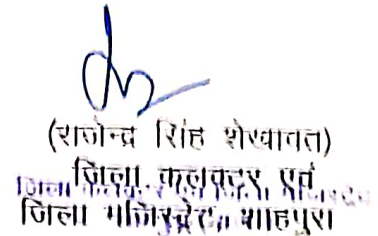 (राजेन्द्र सिंह शेखावत)
जिला कलक्टर एवं
जिला मजिस्ट्रेट, शाहपुरा